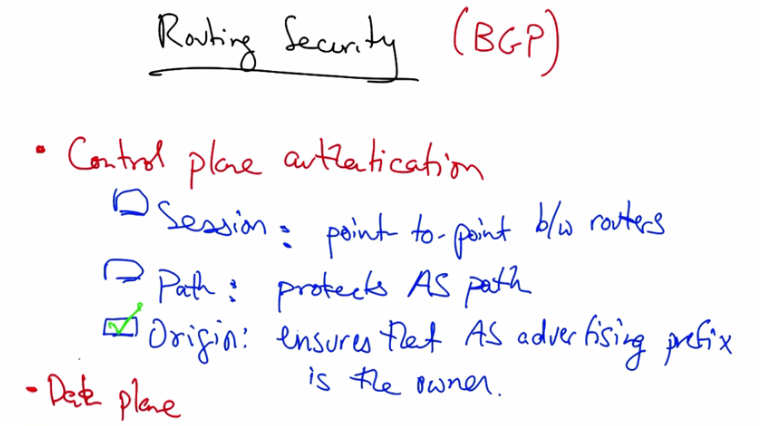 Routing Security (BGP)
• Control plane authentication
Session: point-to-point b/w routers
Path: protects AS path
Origin: ensures that AS advertising prefix
is the owner.
• Data plane